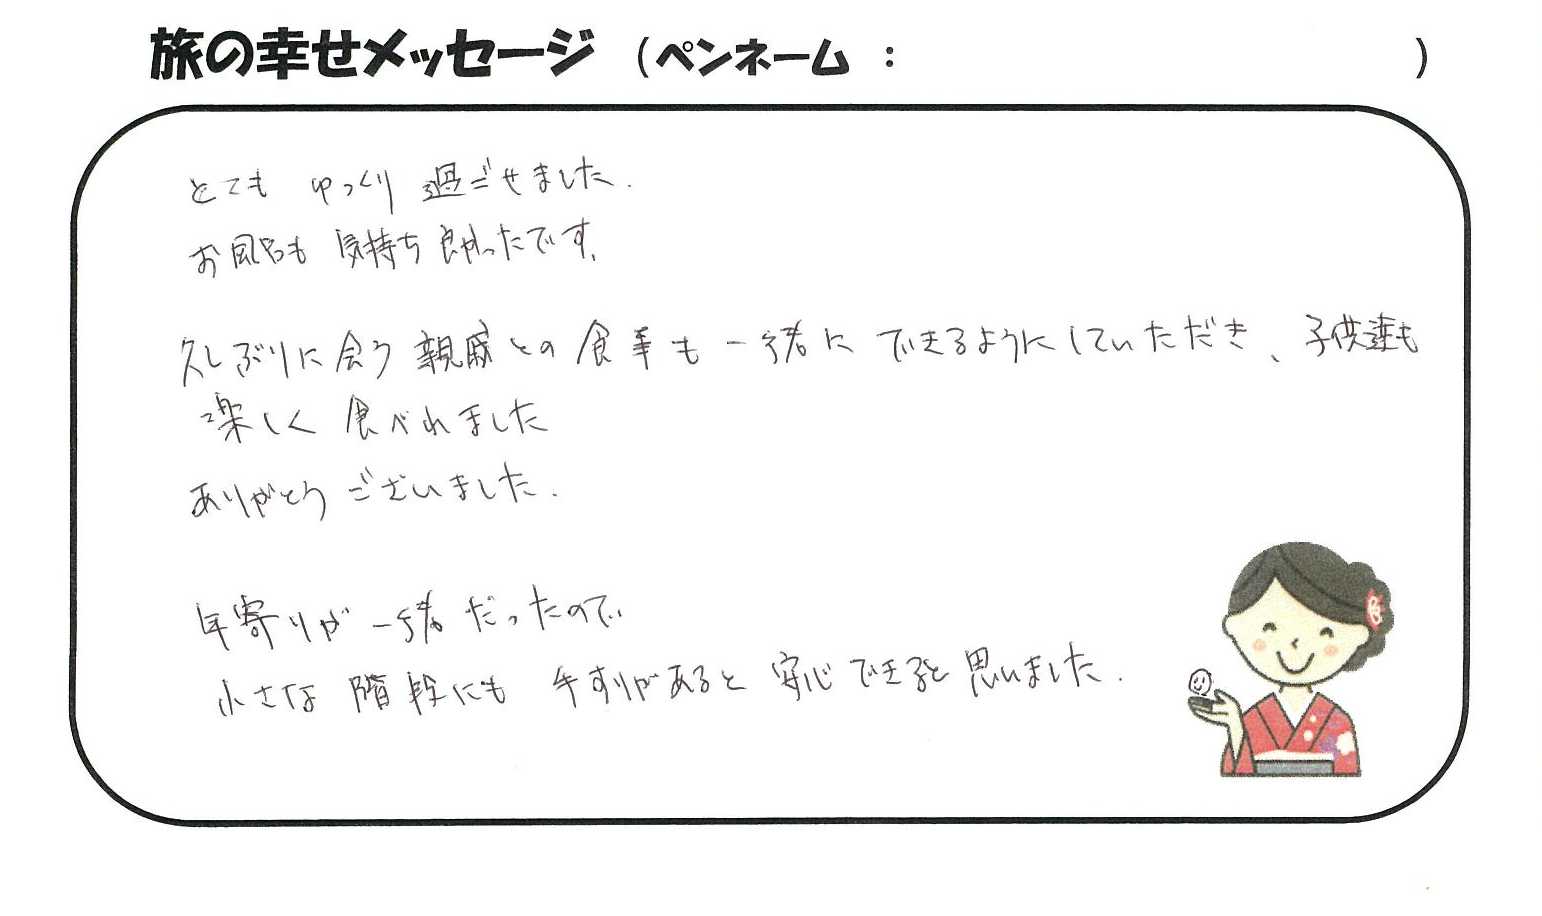 旅の幸せメッセージ (ペンネーム : )
とても ゆっくり 過ごせました.
お風呂も 気持ち良かったです.
久しぶりに会う親戚との食事も一緒にできるようにしていただき、子供達も
楽しく 食べれました
ありがとう ございました.
年寄りが一緒だったので、
小さな階段にも 手すりがあると安心できると思いました.